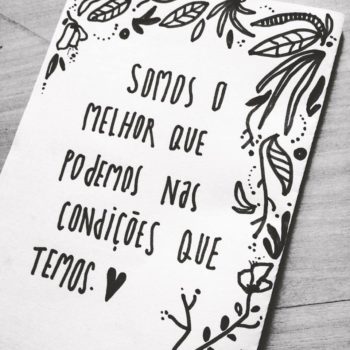 SOMOS O
MELHOR QUE
PODEMOS NAS
CONDIÇÕES QUE
TEMOS.